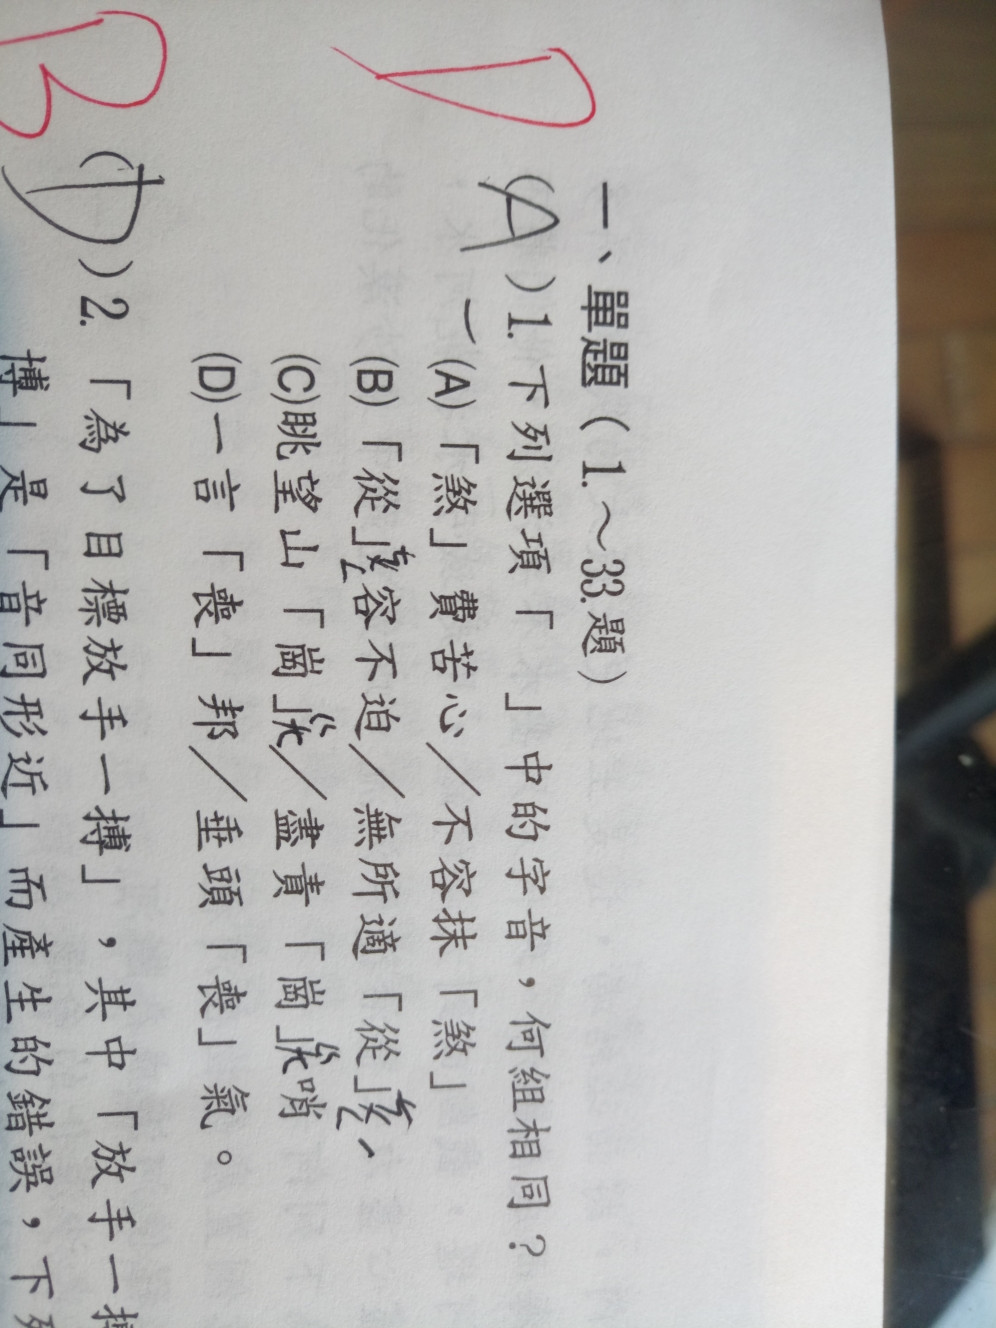 D
一、單題(1.~33.題)
(A)1.下列選項「 」中的字音，何組相同？
(A)「煞」費苦心／不容抹「煞」
(B)「從」容不迫／無所適「從」
(C)眺望山「崗」／盡責「崗」哨
(D)一言「喪」邦／垂頭「喪」氣。
B
(D)2.「為了目標放手一搏」，其中「放手一
博」是「音同形近」而產生的錯誤，下